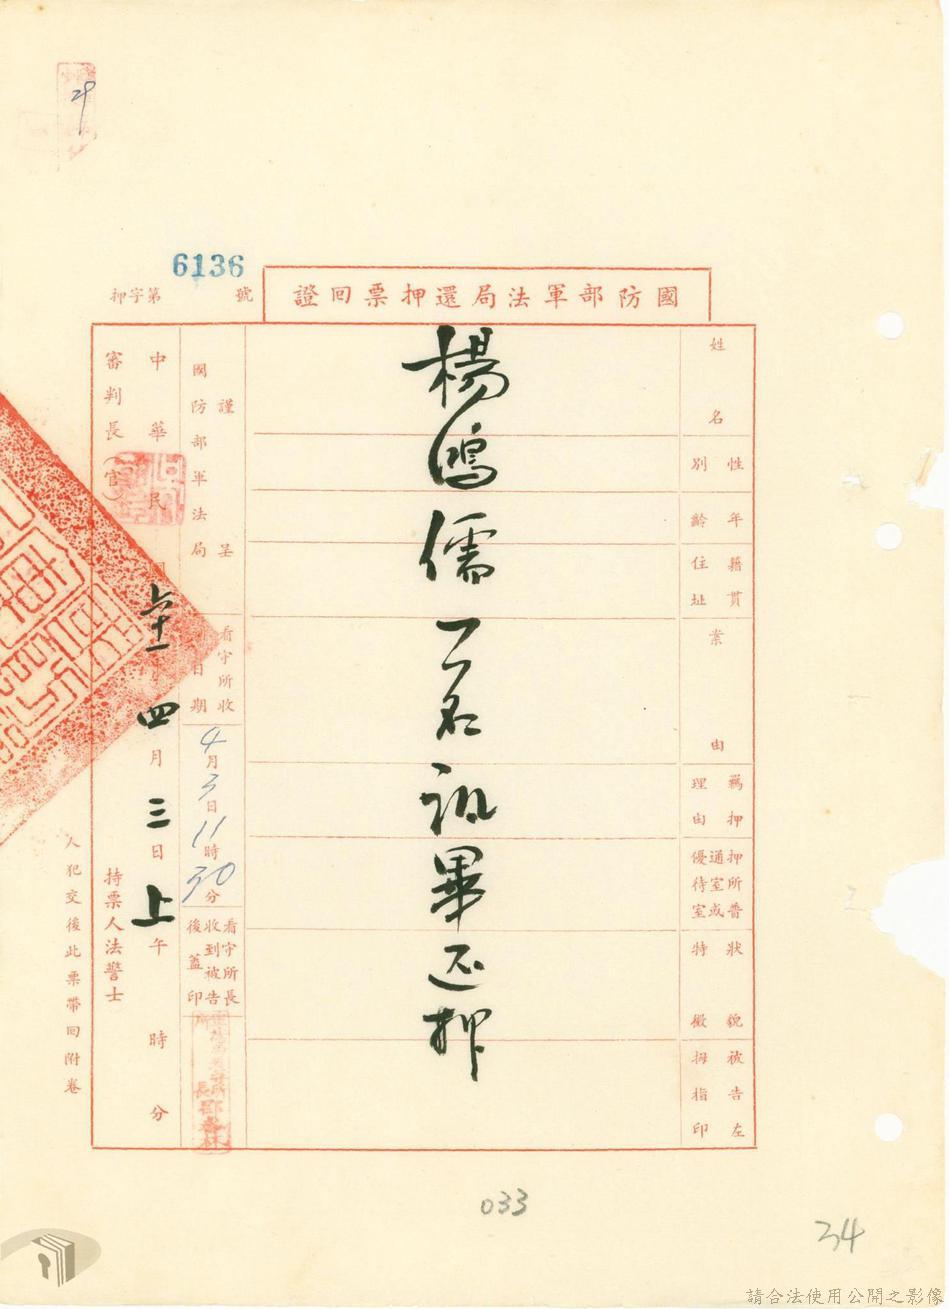 6136
押字第 號
國防部軍法局還押票回證
姓名
性別
年齡
籍貫
住址
案由
羈押理由
押所普通室或優待室
狀貌特徵
被告左拇指印
楊鴻儒一名訊畢還押
謹呈
國防部軍法局
看守所收到日期
4月3日11時30分
看守所長收到被告後蓋印
中華民國六十一年四月三日上午 時 分
審判長(官)
持票人法警士
人犯交後此票帶回附卷
033
34
請合法使用公開之影像